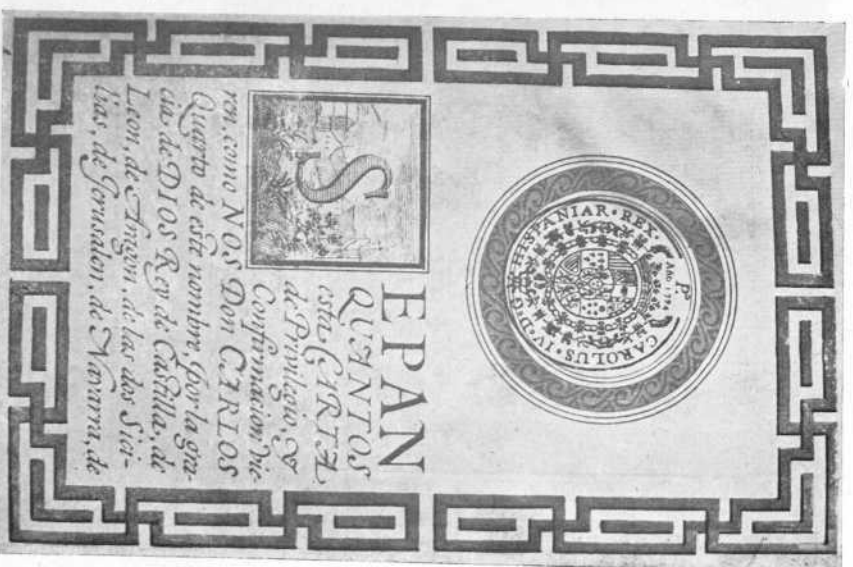 CAROLUS·IV·D·G·HISPANIAR·REX·
Pº
Año 1794
SEPAN
QUANTOS
esta CARTA
de Privilegio, y
Confirmacion vie-
ren, como NOS DON CARLOS
Quarto de este nombre, por la gra-
cia de DIOS Rey de Castilla, de
Leon, de Aragon, de las dos Sici-
lias, de Jerusalen, de Navarra, de